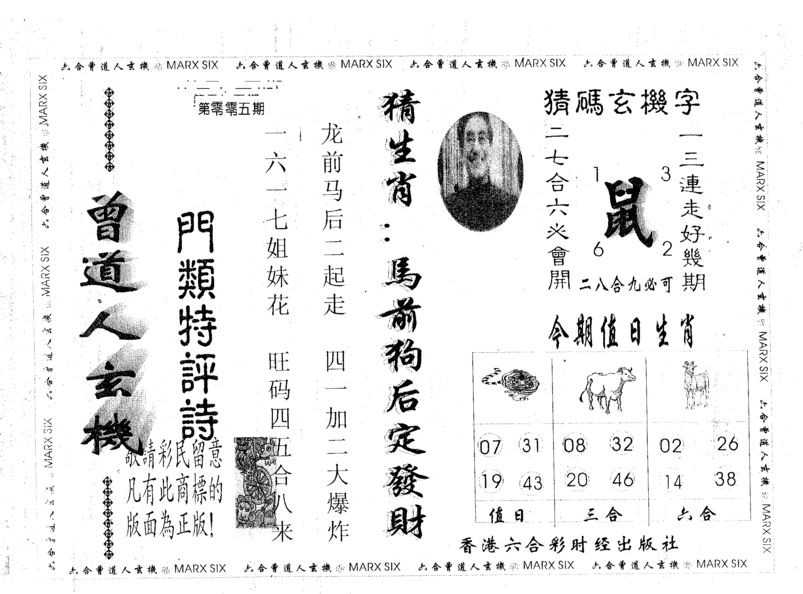 六合曾道人玄機 MARX SIX 六合曾道人玄機 MARX SIX 六合曾道人玄機 MARX SIX 六合曾道人玄機 MARX SIX
第零零五期
曾道人玄機
門類特評詩
龙前马后二起走 四一加二大爆炸
一六一七姐妹花 旺码四五合八来
敬請彩民留意
凡有此商標的
版面為正版!
猜生肖:馬前狗后定發財
猜碼玄機字
一三連走好幾期
二七合六必會開
1 3
鼠
6 2
二八合九必可
今期值日生肖
07 31 08 32 02 26
19 43 20 46 14 38
值日 三合 六合
香港六合彩时经出版社
六合曾道人玄機 MARX SIX 六合曾道人玄機 MARX SIX 六合曾道人玄機 MARX SIX 六合曾道人玄機 MARX SIX
六合曾道人玄機 MARX SIX 六合曾道人玄機 MARX SIX 六合曾道人玄機 MARX SIX
六合曾道人玄機 MARX SIX 六合曾道人玄機 MARX SIX 六合曾道人玄機 MARX SIX